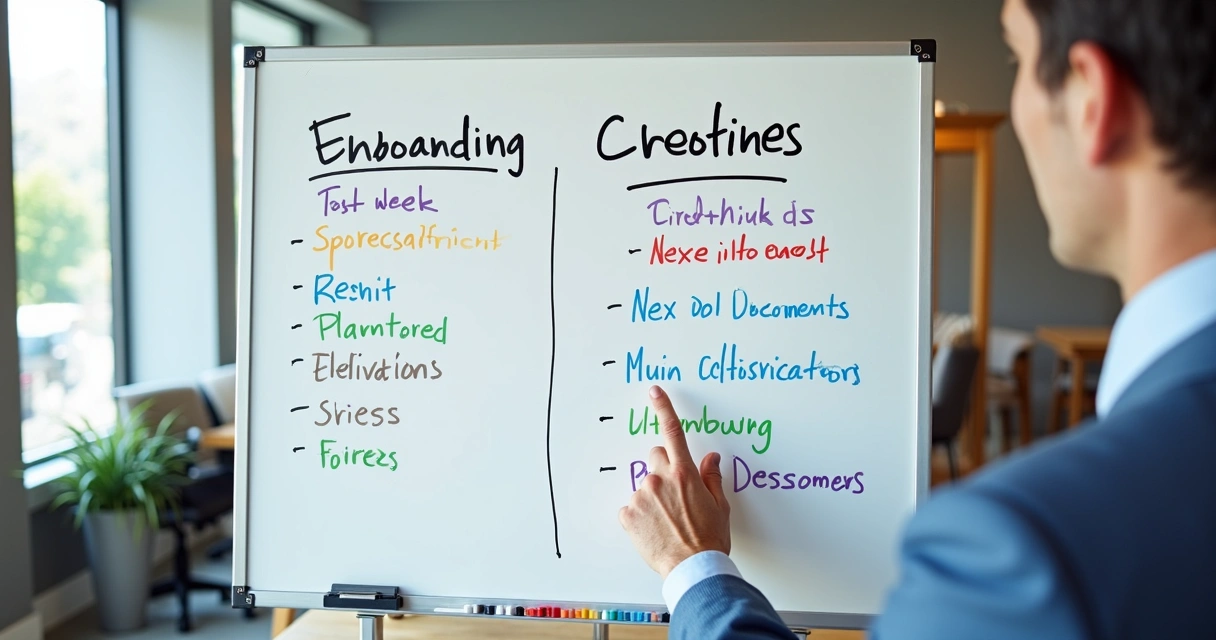 Enboanding
Tost week
- Sporecsalfricnt
- Reshit
- Plamtored
- Elelivations
- Sriess
- Foirezs
Creotines
Cired+hiuk ds
- Nexe ilto eaost
- Nex Dol Documents
- Muin
Dessomers